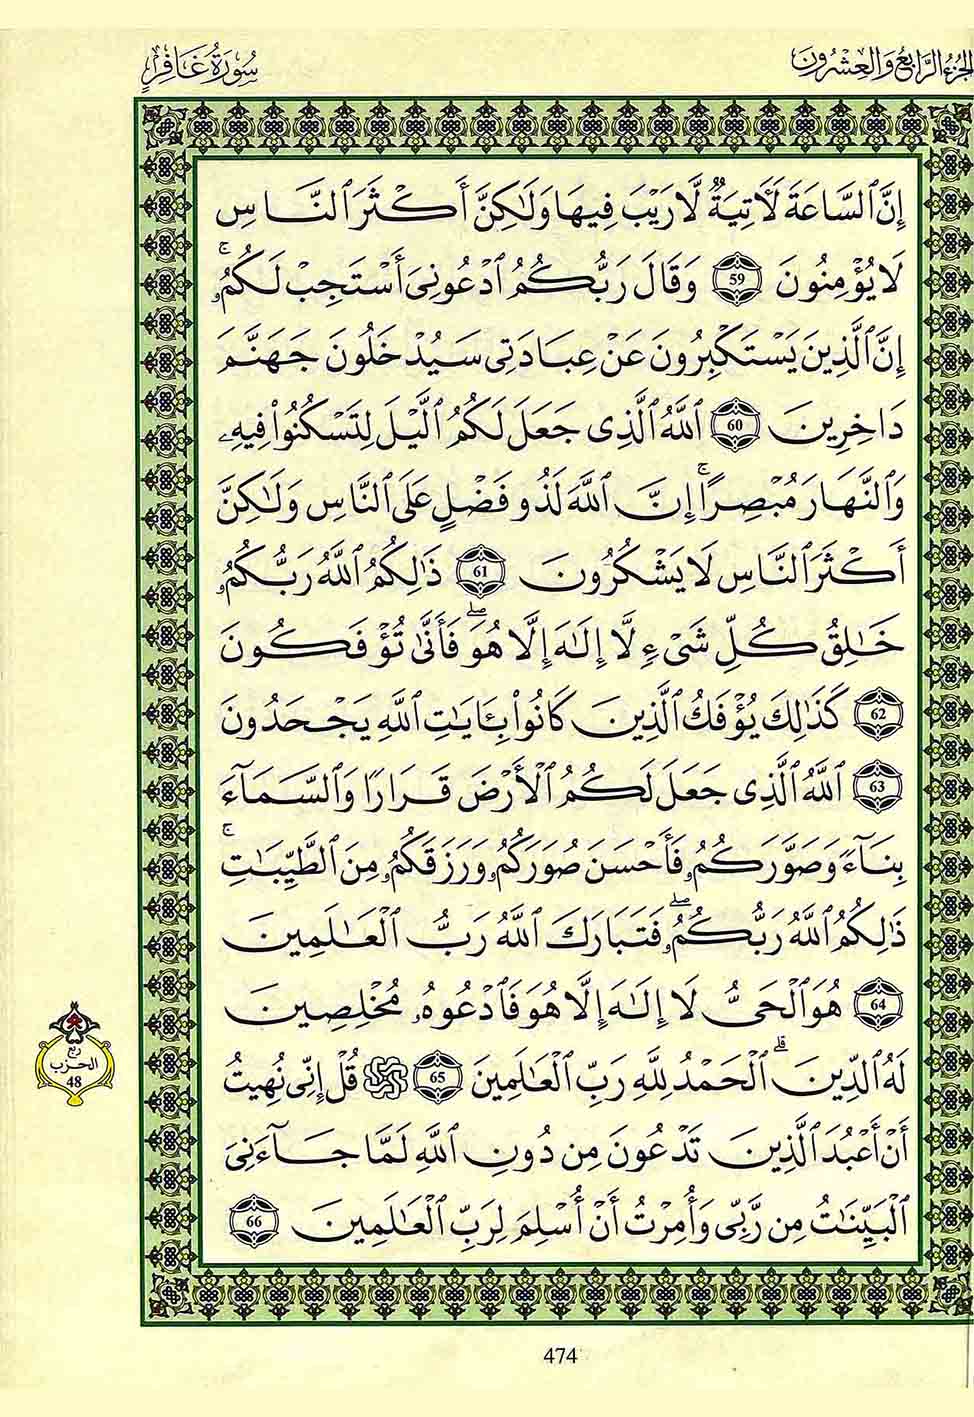 الجزء الرابع والعشرون
سورة غافر
إِنَّ ٱلسَّاعَةَ لَأٓتِيَةٌ لَّا رَيْبَ فِيهَا وَلَٰكِنَّ أَكْثَرَ ٱلنَّاسِ
لَا يُؤْمِنُونَ 59 وَقَالَ رَبُّكُمُ ٱدْعُونِىٓ أَسْتَجِبْ لَكُمُۥۚ
إِنَّ ٱلَّذِينَ يَسْتَكْبِرُونَ عَنْ عِبَادَتِى سَيُدْخَلُونَ جَهَنَّمَ
دَاخِرِينَ 60 ٱللَّهُ ٱلَّذِى جَعَلَ لَكُمُ ٱلَّيْلَ لِتَسْكُنُوا۟ فِيهِۦ
وَٱلنَّهَارَ مُبْصِرًاۚ إِنَّ ٱللَّهَ لَذُو فَضْلٍ عَلَى ٱلنَّاسِ وَلَٰكِنَّ
أَكْثَرَ ٱلنَّاسِ لَا يَشْكُرُونَ 61 ذَٰلِكُمُ ٱللَّهُ رَبُّكُمُۥ
خَٰلِقُ كُلِّ شَىْءٍ لَّا إِلَٰهَ إِلَّا هُوَۖ فَأَنَّىٰ تُؤْفَكُونَ
62 كَذَٰلِكَ يُؤْفَكُ ٱلَّذِينَ كَانُوا۟ بِـَٔايَٰتِ ٱللَّهِ يَجْحَدُونَ
63 ٱللَّهُ ٱلَّذِى جَعَلَ لَكُمُ ٱلْأَرْضَ قَرَارًا وَٱلسَّمَآءَ
بِنَآءً وَصَوَّرَكُمُۥ فَأَحْسَنَ صُوَرَكُمُۥ وَرَزَقَكُمُۥ مِنَ ٱلطَّيِّبَٰتِۚ
ذَٰلِكُمُ ٱللَّهُ رَبُّكُمُۥۖ فَتَبَارَكَ ٱللَّهُ رَبُّ ٱلْعَٰلَمِينَ
64 هُوَ ٱلْحَىُّ لَا إِلَٰهَ إِلَّا هُوَ فَٱدْعُوهُۥ مُخْلِصِينَ
لَهُ ٱلدِّينَۗ ٱلْحَمْدُ لِلَّهِ رَبِّ ٱلْعَٰلَمِينَ 65 قُلْ إِنِّى نُهِيتُ
أَنْ أَعْبُدَ ٱلَّذِينَ تَدْعُونَ مِن دُونِ ٱللَّهِ لَمَّا جَآءَنِىَ
ٱلْبَيِّنَٰتُ مِن رَّبِّى وَأُمِرْتُ أَنْ أُسْلِمَ لِرَبِّ ٱلْعَٰلَمِينَ 66
ربع
الحزب
48
474